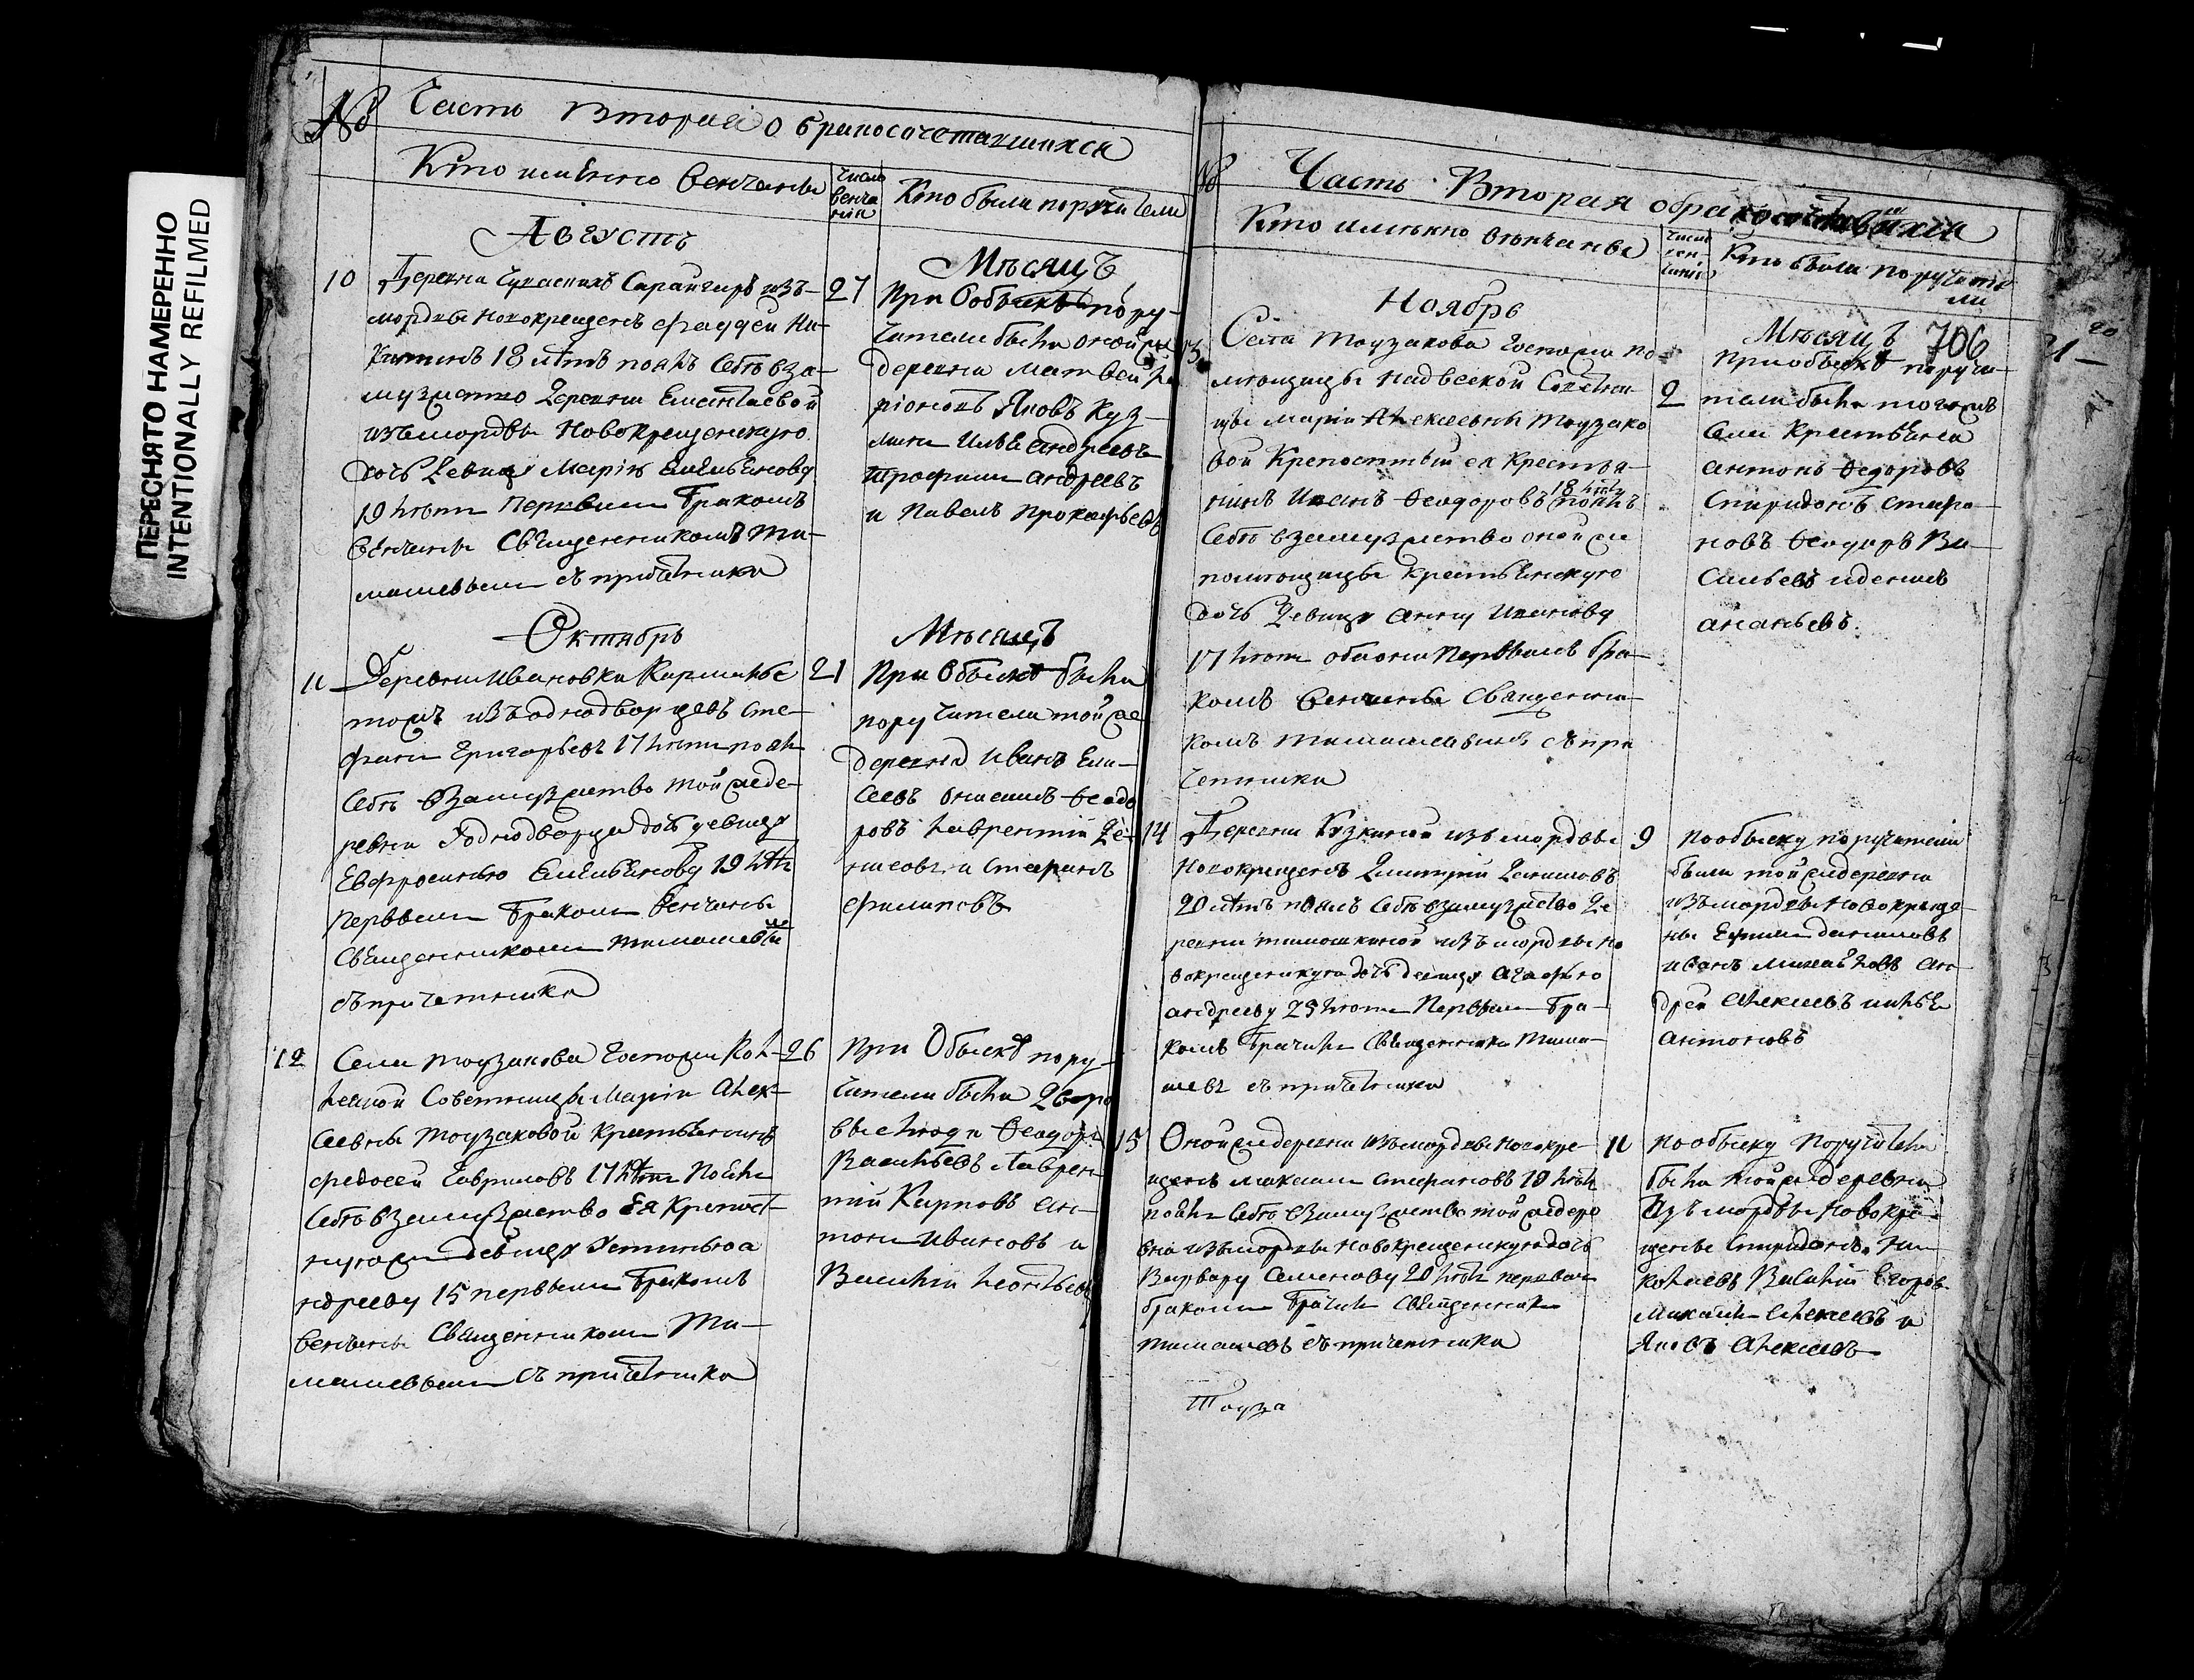 ПЕРЕСНЯТО НАМЕРЕННО
INTENTIONALLY REFILMED
№ Часть Вторая о бракосочетавшихся
Кто именно венчаны
Число венчания
Кто были поручители
Августъ
Мѣсяцъ
10
Деревни Чуваскихъ изъ
мордвы новокрещенъ Фаддей Ни-
китинъ 18 лѣтъ понялъ себѣ вза-
мужство деревни
изъ мордвы Новокрещенскую
дочь девицу Марію Емельянову
19 лѣтъ первымъ бракомъ
венчаны Священникомъ Ти-
машевымъ съ причетники
27
при обыске пору-
чители были оной же
деревни Матвей
Яковъ Куз-
минъ Илья Андреевъ
Трофимъ Андреевъ
и Павелъ Прокофьевъ
Октябрь
Мѣсяцъ
11
Деревни Ивановки Кармалы
тожъ изъ однодворцевъ Сте-
фанъ Григорьевъ 17 лѣтъ понялъ
себѣ взамужство той же де-
ревни однодворца дочь девицу
Евфросинью Емельянову 19 лѣтъ
первымъ бракомъ венчаны
Священникомъ Тимашевымъ
съ причетники
21
При Обыскѣ были
поручители той же
деревни Иванъ Ели-
сеевъ Онисимъ Феодо
ровъ Лаврентий Де-
нисовъ и Стефанъ
Филиповъ
12
Села Тоузакова Госпожи Кол-
лежской Советницы Марьи Алек-
сеевны Тоузаковой крестьянинъ
Федосей Гавриловъ 17 лѣтъ понялъ
себѣ взамужство Ея крепост-
ную девицу Устинью А
ндрееву 15 первымъ бракомъ
венчаны Священникомъ Ти-
машевымъ съ причетники
26
при Обыскѣ пору-
чители были дворо
вые люди Феодоръ
Васильевъ Лаврен
тий Карповъ Ан-
тонъ Ивановъ и
Василий Леонтьевъ
№ Часть Вторая о бракосочетавшихся
Кто именно венчаны
Число венчания
Кто были поручители
Ноябрь
Мѣсяцъ 706
13
Села Тоузакова Госпожи по-
мещицы Надворной Советни-
цы Маріи Алексеевны Тоузако
вой Крепостный ея крестья-
нинъ Иванъ Феодоровъ 18 лѣтъ понялъ
себѣ взамужство оной же
помещицы крестьянскую
дочь девицу Анну Иванову
17 лѣтъ обои они первымъ бра-
комъ венчаны Священни-
комъ Тимашевымъ съ при
четники
2
При обыскѣ поручи-
тели были того жъ
села Крестьяна
Антонъ Федоровъ
Спиридонъ Стефа-
новъ Феодоръ Ва-
сильевъ и Денисъ
Ананьевъ.
14
Деревни Кузкиной изъ мордвы
Новокрещенъ Димитрий Даниловъ
20 лѣтъ понялъ себѣ взамужство де
ревни Тимошкиной изъ мордвы но
вокрещенскую дочь девицу Агафью
Андрееву 23 лѣтъ Первымъ бра-
комъ брачилъ Священникъ Тима-
шевъ съ причетники
9
По обыску поручители
были той же деревни
изъ мордвы новокреще-
ны Ефимъ Даниловъ
Иванъ Михайловъ Ан-
дрей Алексеевъ и Илья
Антоновъ
15
Оной же деревни изъ мордвы новокре-
щенъ Максимъ Стефановъ 19 лѣтъ
понялъ себѣ взамужство той же дере
вни изъ мордвы новокрещенскую дочь
Варвару Семенову 20 лѣтъ первымъ
бракомъ брачилъ Священникъ
Тимашевъ съ причетники
11
По обыску Поручители
были той же деревни
Изъ мордвы Новокре-
щены Спиридонъ Ни-
колаевъ Василий Егоровъ
Михаилъ Алексеевъ и
Яковъ Алексеевъ
Тоуза